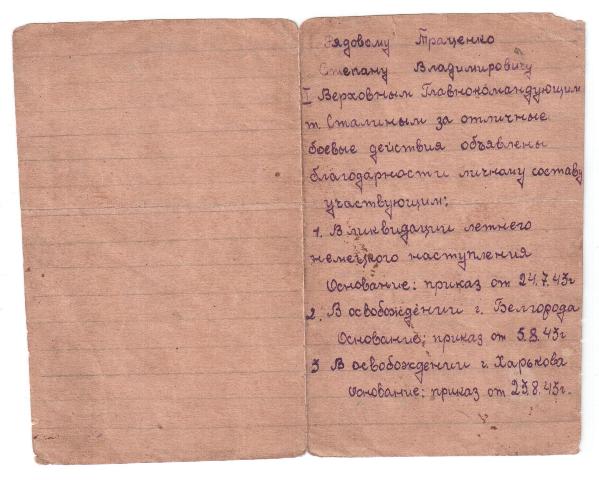 Рядовому Траценко
Степану Владимировичу
I Верховным Главнокомандующим
т. Сталиным за отличные
боевые действия объявлены
благодарности личному составу
участвующим:
1. В ликвидации летнего
немецкого наступления
Основание: приказ от 24.7.43г
2. В освобождении г. Белгорода
Основание: приказ от 5.8.43г
3 В освобождении г. Харькова
Основание: приказ от 23.8.43г.